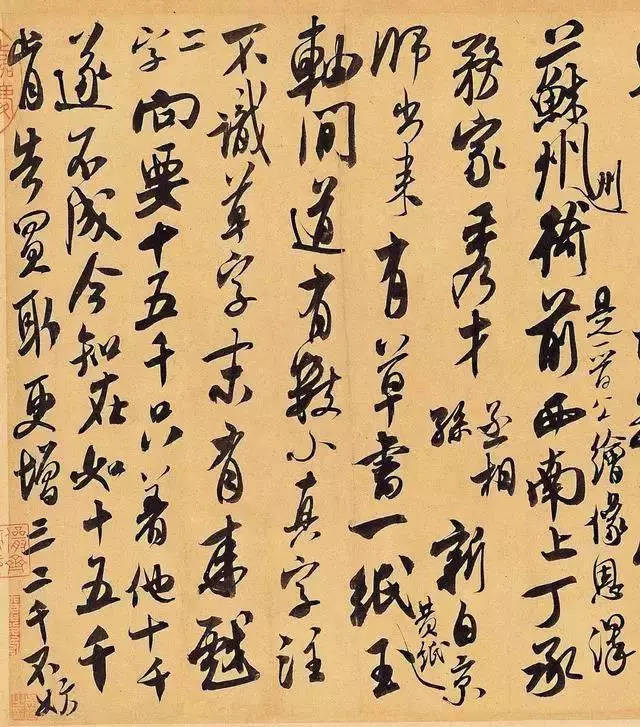 蘇州衙前西南上丁承
州
是晉公繪像恩澤
務家秀才丞相孫新自京
師出来有草書一紙玉
黄紙
軸間道有數小真字注
不識草字末有来戲
二字向要十五千只着他十千
遂不成今知在如十五千
肯告買取更增三二千不妨